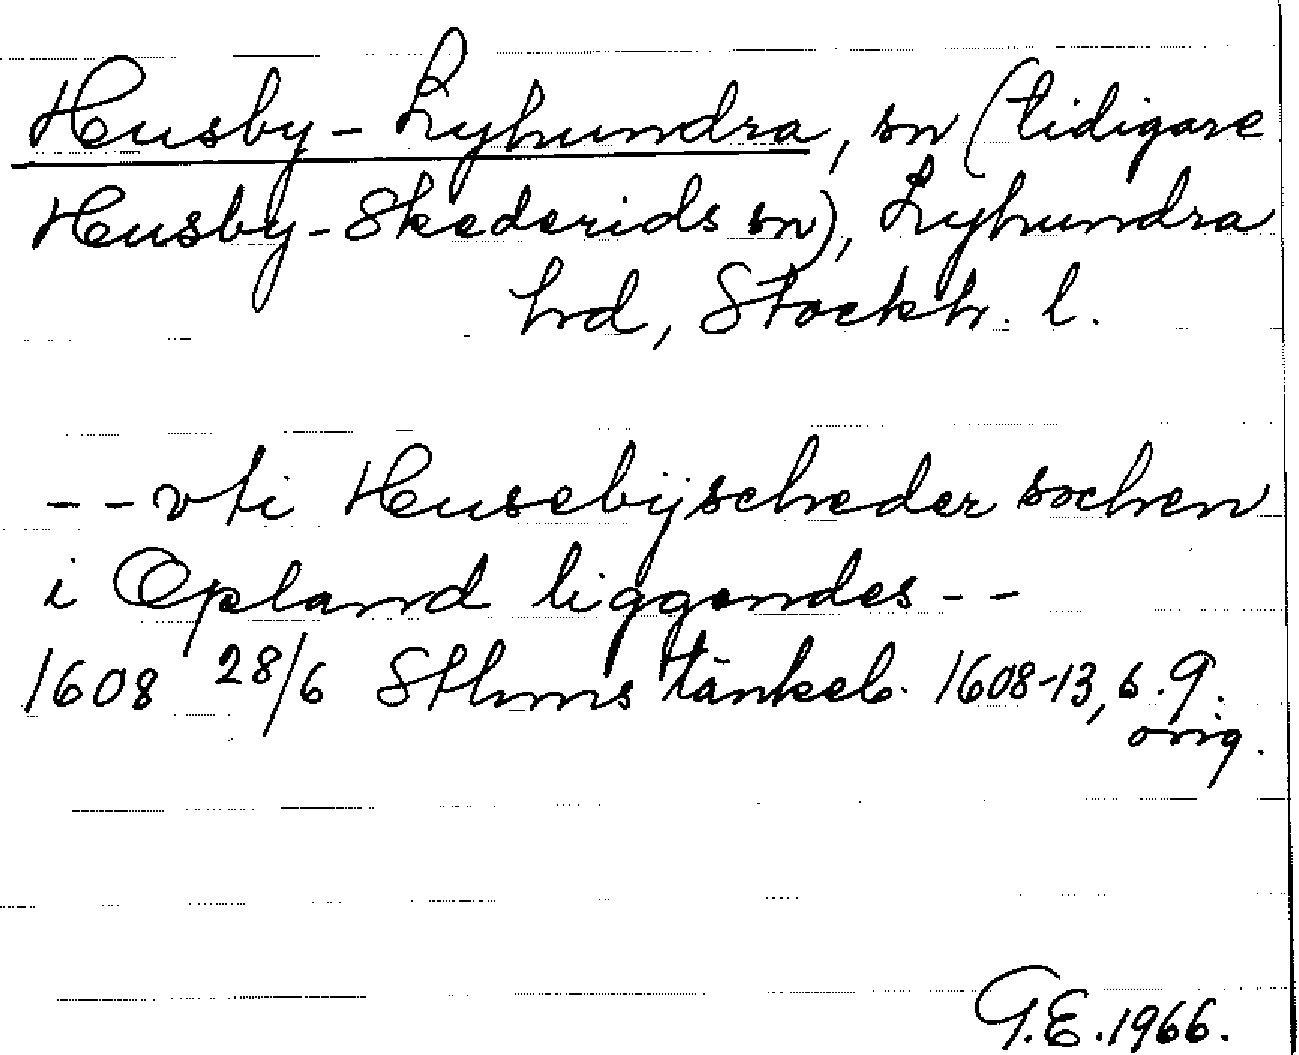 Husby-Lyhundra, sn (tidigare
Husby-Skederids sn), Lyhundra
hrd, Stockh. l.
-- vti Husebijscheder sochen
i Opland liggendes --
1608 28/6 Sthms tänkeb. 1608-13, s. 9.
orig.
G.E. 1966.